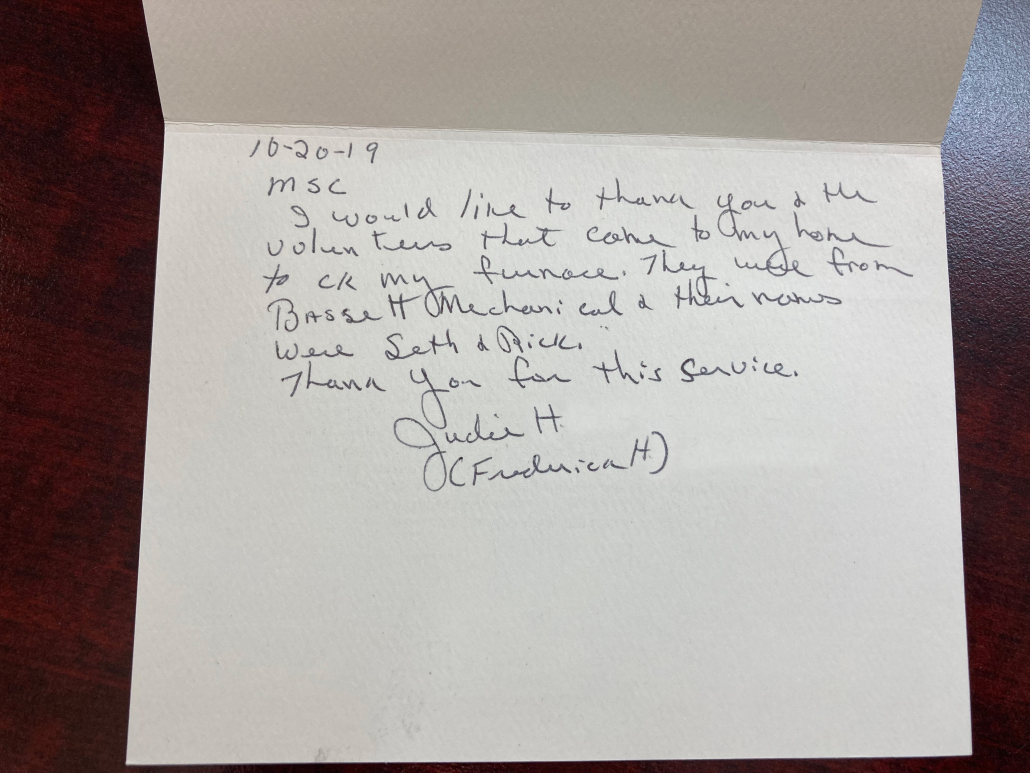 10-20-19
MSC
I would like to thank you & the
volunteers that came to my home
to ck my furnace. They were from
Bassett Mechanical & their names
were Seth & Rick.
Thank you for this service.
Judie H.
(Frederica H)